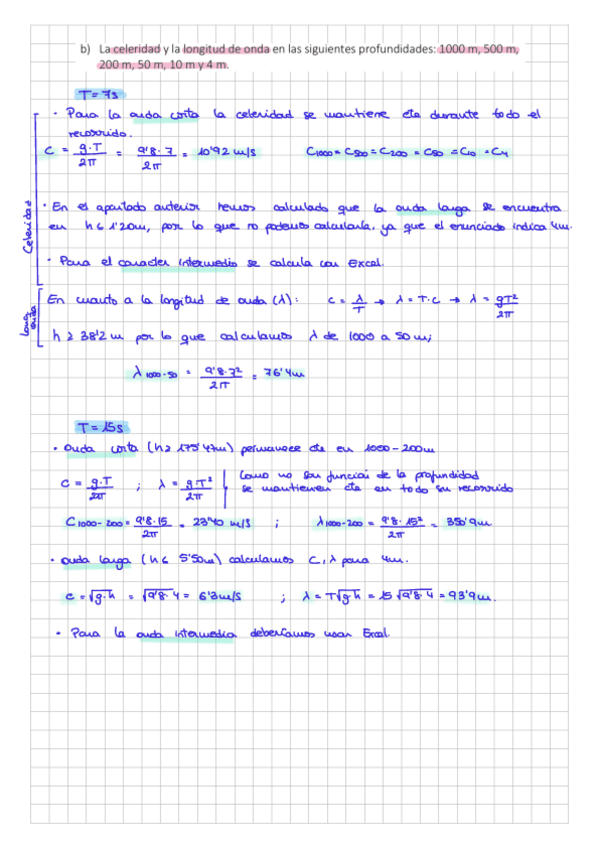 b) La celeridad y la longitud de onda en las siguientes profundidades: 1000 m, 500 m,
200 m, 50 m, 10 m y 4 m.
T = 7s
· Para la onda corta la celeridad se mantiene cte durante todo el
recorrido.
C = g·T/2π = 9'8·7/2π = 10'92 m/s C1000 = C500 = C200 = C50 = C10 = C4
Celeridad
· En el apartado anterior hemos calculado que la onda larga se encuentra
en h ≤ 1'20m, por lo que no podemos calcularla, ya que el enunciado indica 4m.
· Para el caracter intermedio se calcula con Excel.
Long. onda
En cuanto a la longitud de onda (λ): C = λ/T → λ = T·C → λ = gT²/2π
h ≥ 38'2 m por lo que calculamos λ de 1000 a 50 m;
λ 1000-50 = 9'8·7²/2π = 76'4m
T = 15s
· Onda corta (h ≥ 175'47m) permanece cte en 1000-200m
C = g·T/2π ; λ = g·T²/2π Como no son función de la profundidad
se mantienen cte en todo su recorrido
C1000-200 = 9'8·15/2π = 23'40 m/s ; λ1000-200 = 9'8·15²/2π = 350'9m
· Onda larga (h ≤ 5'50m) calculamos C, λ para 4m.
C = √g·h = √9'8·4 = 6'3m/s ; λ = T√g·h = 15 √9'8·4 = 93'9m.
· Para la onda intermedia deberíamos usar Excel.